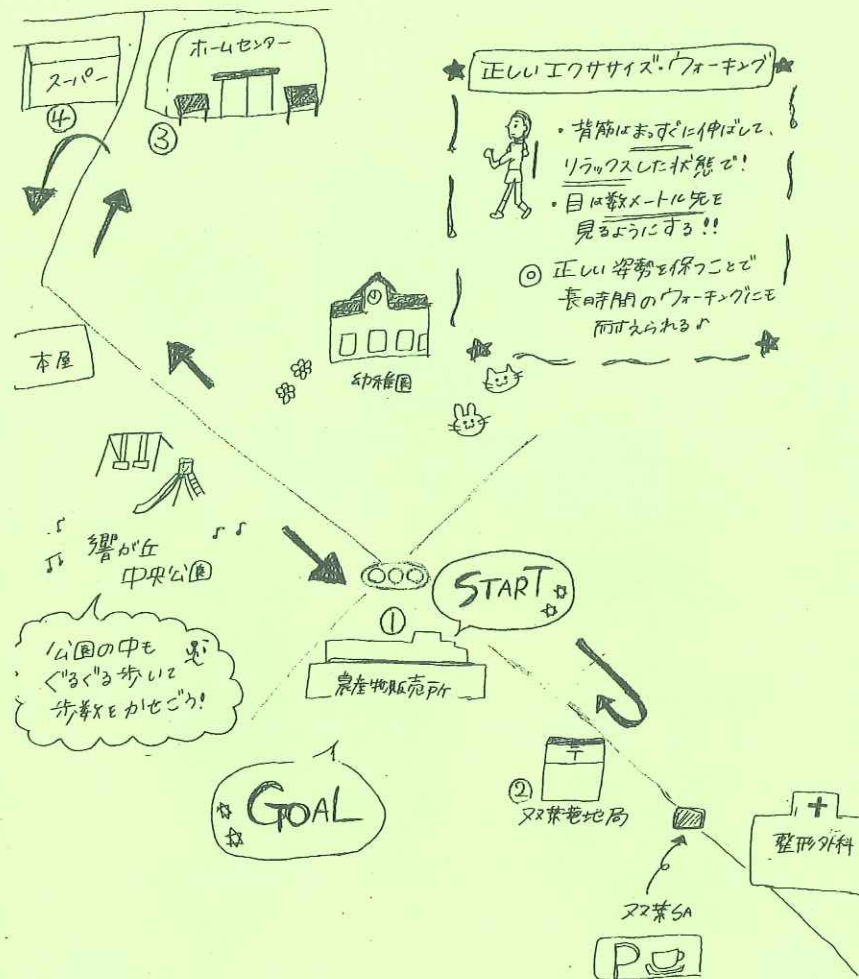 ホームセンター
スーパー
④
③
正しいエクササイズ・ウォーキング
・背筋はまっすぐに伸ばして、
リラックスした状態で!
・目は数メートル先を
見るようにする!!
◎ 正しい姿勢を保つことで
長時間のウォーキングにも
耐えられる♪
本屋
幼稚園
響が丘
中央公園
公園の中も
ぐるぐる歩いて
歩数をかせごう!
START
①
農産物販売所
GOAL
〒
②
双葉竜地局
整形外科
双葉SA
P